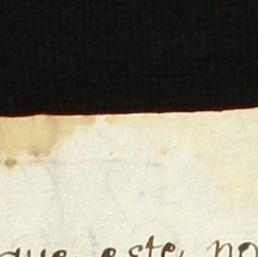 que este no